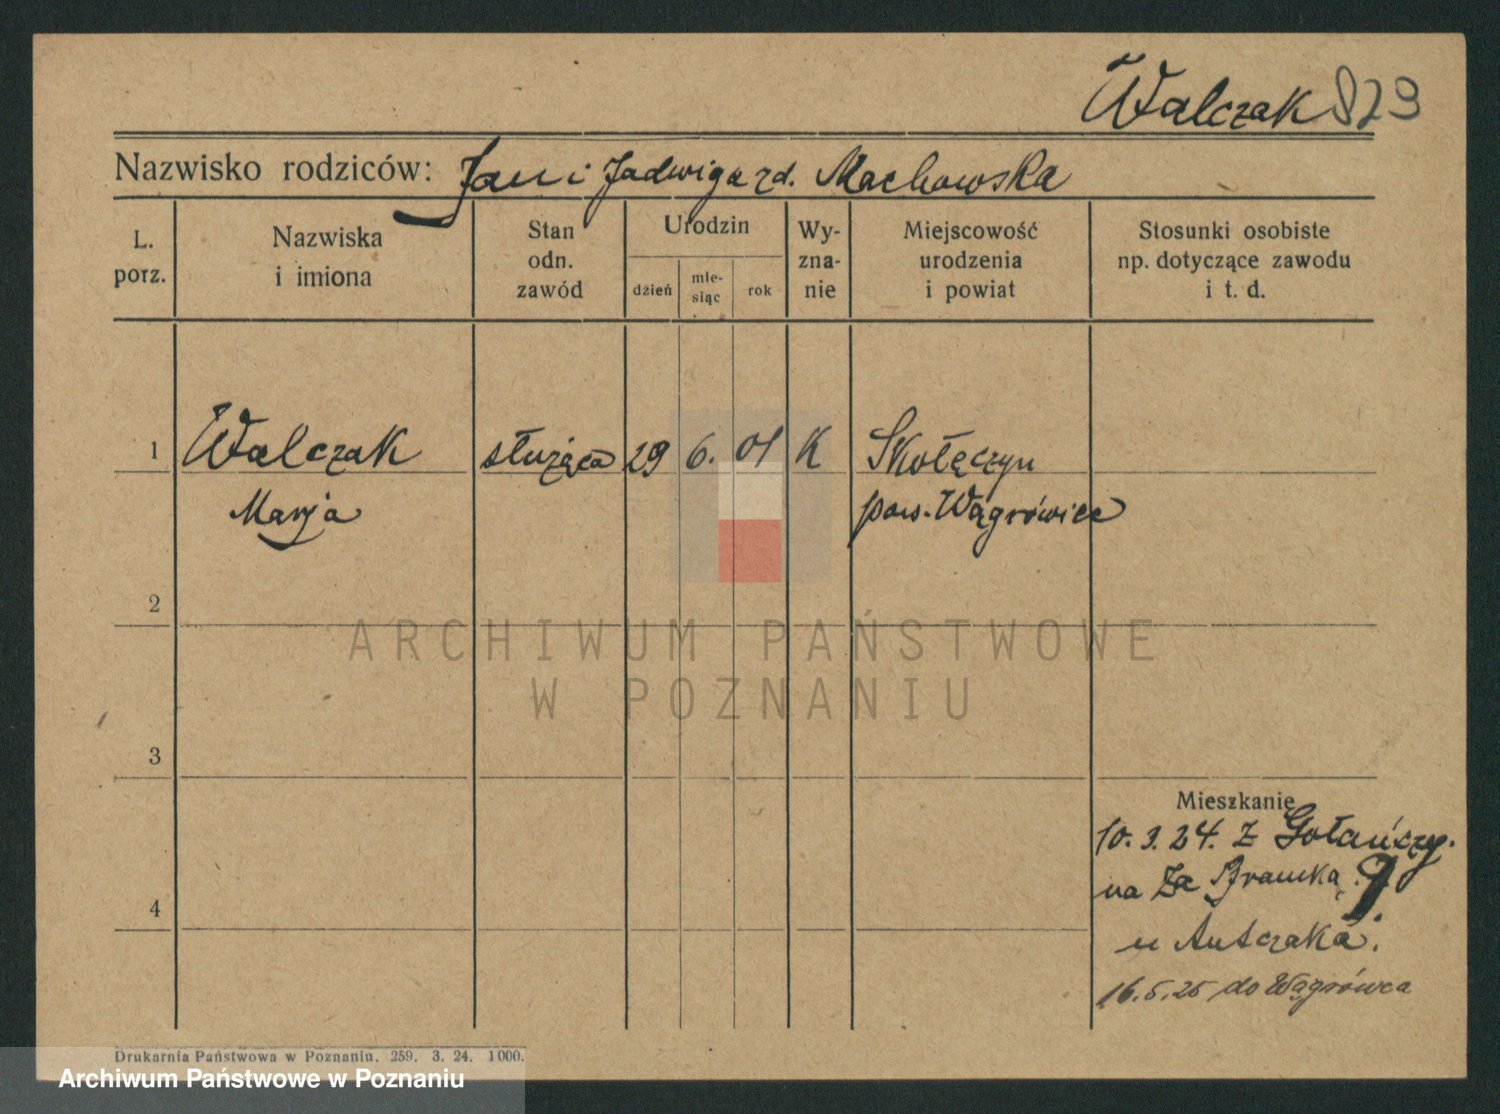 Walczak 823
Nazwisko rodziców: Jan i Jadwiga zd. Machowska
L. porz.
Nazwiska i imiona
Stan odn. zawód
Urodzin
dzień
mie-siąc
rok
Wy-zna-nie
Miejscowość urodzenia i powiat
Stosunki osobiste np. dotyczące zawodu i t. d.
1 Walczak służąca 29 6. 01 K Skołęczyn
Marja pow. Wągrówiec
2
ARCHIWUM PAŃSTWOWE
W POZNANIU
3
Mieszkanie
10. 3. 24. z Gołańczy.
na Za Bramką 9.
4
u Antczaka.
16.5.25 do Wągrówca
Drukarnia Państwowa w Poznaniu. 259. 3. 24. 1000.
Archiwum Państwowe w Poznaniu